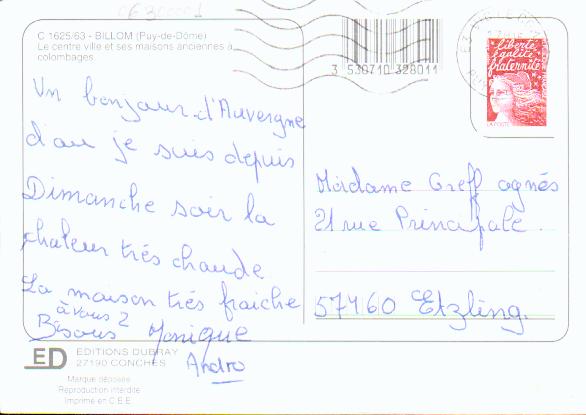 C 1625/63 - BILLOM (Puy-de-Dôme)
Le centre ville et ses maisons anciennes à
colombages
3 530710 328011
liberté
égalité
fraternité
LA POSTE
Un bonjour d'Auvergne
d'au je suis depuis
Dimanche soir la
chaleur très chaude
La maison très fraiche
à vous 2
Bisous Monique
André
Madame Greff agnés
21 rue Principale.
57460 Etzling.
ED
EDITIONS DUBRAY
27190 CONCHES
Marque déposée
Reproduction interdite
Imprimé en C.E.E.